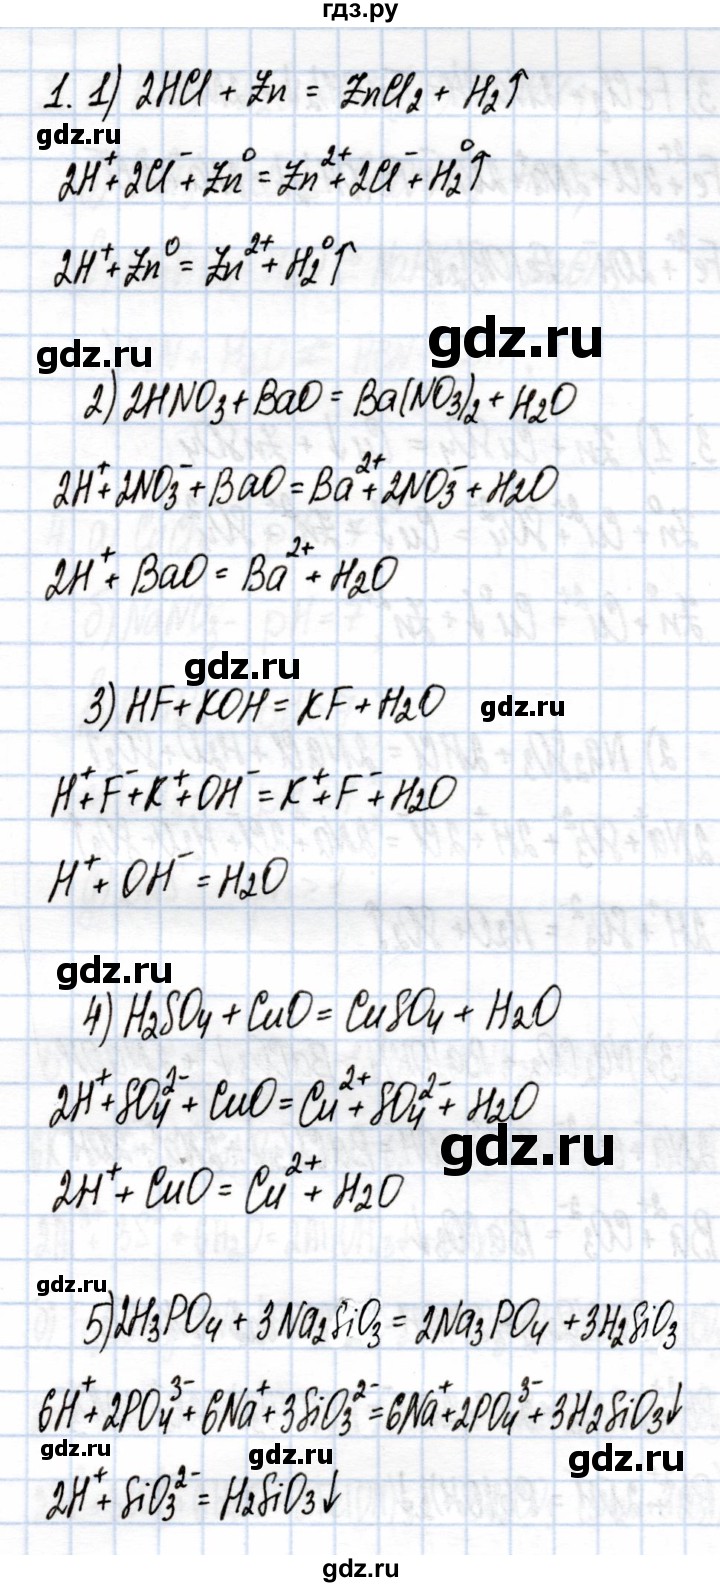 гдз.ру
1. 1) 2HCl + Zn = ZnCl₂ + H₂↑
gdz.ru
2H⁺ + 2Cl⁻ + Zn⁰ = Zn²⁺ + 2Cl⁻ + H₂⁰↑
2H⁺ + Zn⁰ = Zn²⁺ + H₂⁰↑
gdz.ru
gdz.ru
2) 2HNO₃ + BaO = Ba(NO₃)₂ + H₂O
2H⁺ + 2NO₃⁻ + BaO = Ba²⁺ + 2NO₃⁻ + H₂O
2H⁺ + BaO = Ba²⁺ + H₂O
gdz.ru
3) HF + KOH = KF + H₂O
gdz.ru
H⁺ + F⁻ + K⁺ + OH⁻ = K⁺ + F⁻ + H₂O
H⁺ + OH⁻ = H₂O
gdz.ru
4) H₂SO₄ + CuO = CuSO₄ + H₂O
2H⁺ + SO₄²⁻ + CuO = Cu²⁺ + SO₄²⁻ + H₂O
gdz.ru
2H⁺ + CuO = Cu²⁺ + H₂O
gdz.ru
5) 2H₃PO₄ + 3Na₂SiO₃ = 2Na₃PO₄ + 3H₂SiO₃
6H⁺ + 2PO₄³⁻ + 6Na⁺ + 3SiO₃²⁻ = 6Na⁺ + 2PO₄³⁻ + 3H₂SiO₃↓
gdz.ru
gdz.ru
gdz.ru
2H⁺ + SiO₃²⁻ = H₂SiO₃↓
gdz.ru